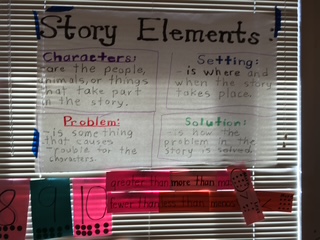 Story Elements:
Characters:
- are the people,
animals, or things
that take part
in the story.
Setting:
- is where and
when the story
takes place.
Problem:
- is something
that causes
trouble for the
characters.
Solution:
- is how the
problem in the
story is solved.
8
9
10
greater than more than
fewer than less than